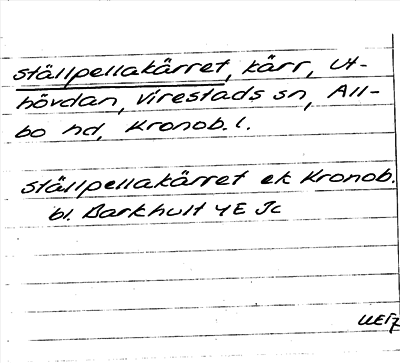 ställpellakärret, kärr, ut-
hövdan, Virestads sn, All-
bo hd, Kronob. l.
ställpellakärret ek Kronob.
bl. Barkhult 4E Jc